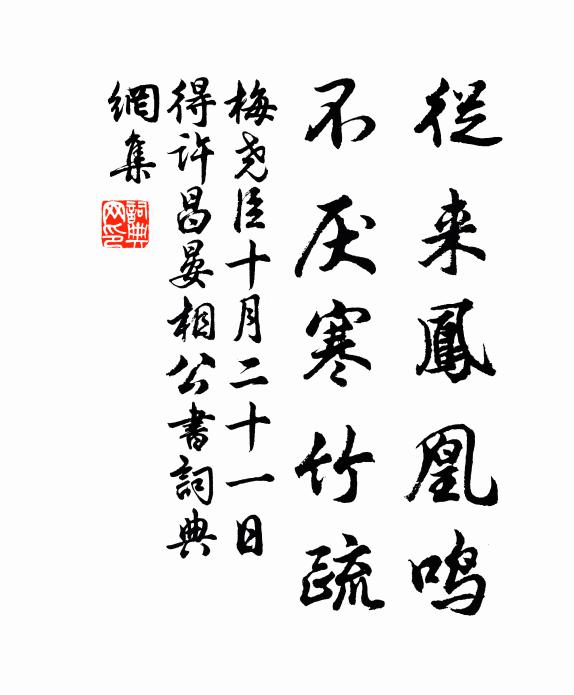 從来鳳凰鳴
不厌寒竹疏
梅尧臣十月二十一日
得许昌晏相公書詞典
網集
詞典
网印